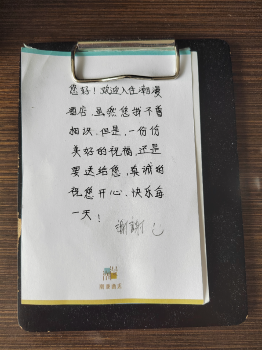 您好！欢迎入住潮漫
酒店，虽然您我不曾
相识，但是，一份份
美好的祝福，还是
要送给您，真诚的
祝您开心、快乐每
一天！
谢谢
潮漫酒店